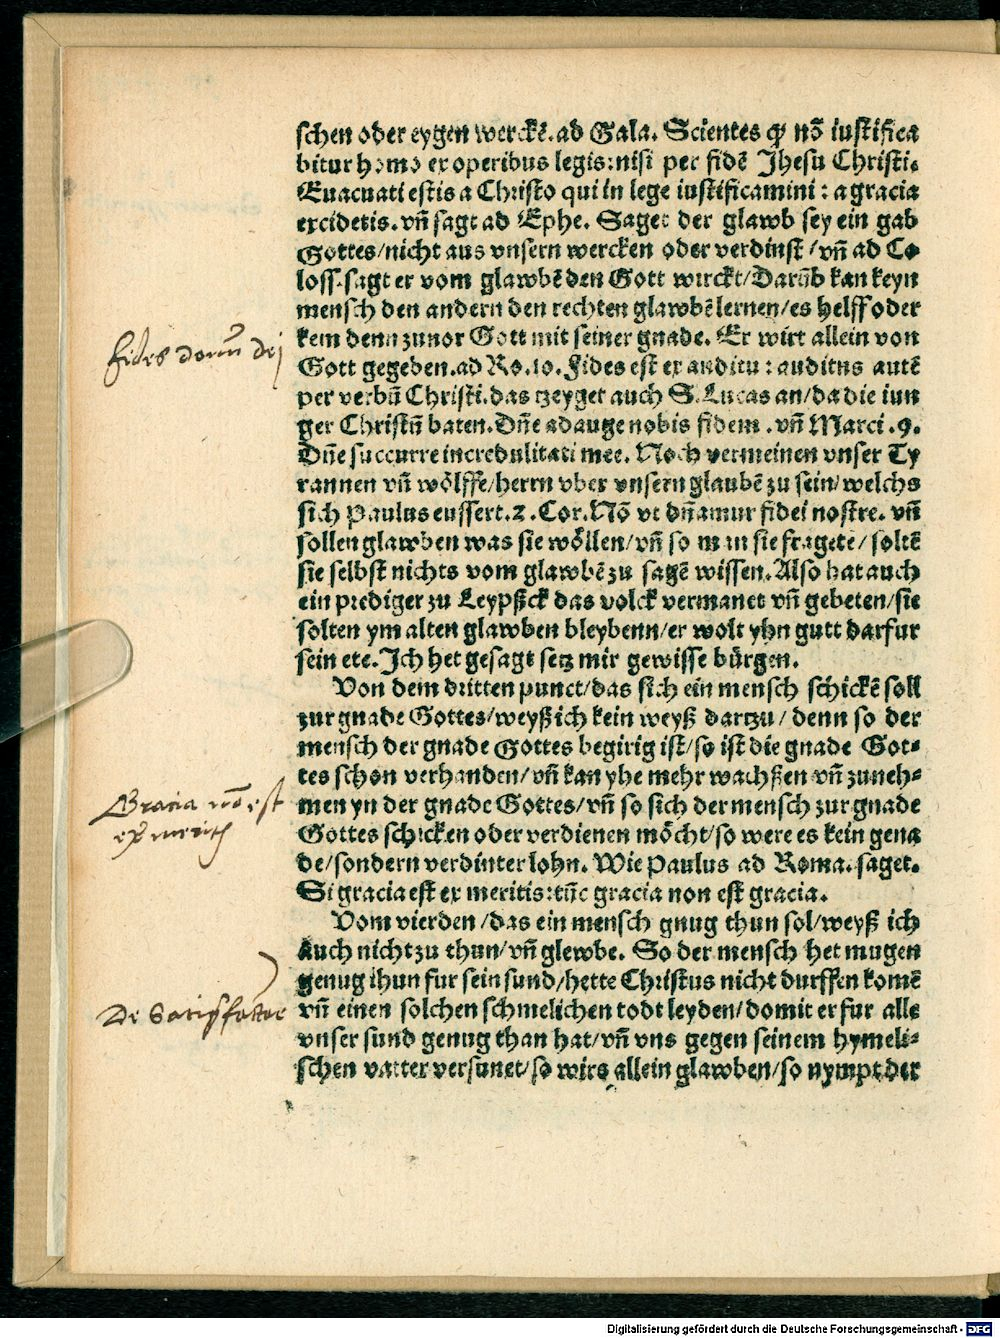 schen oder eygen werckē. ad Gala. Scientes ꝙ nō iustifica
bitur homo ex operibus legis: nisi per fidē Jhesu Christi.
Euacuati estis a Christo qui in lege iustificamini : a gracia
excidetis. vñ sagt ad Ephe. Saget der glawb sey ein gab
Gottes/nicht aus vnsern wercken oder verdinst/vñ ad Co-
loss. sagt er vom glawbē den Gott wirckt/Darūb kan keyn
mensch den andern den rechten glawbē lernen/es helff oder
kem denn zuuor Gott mit seiner gnade. Er wirt allein von
Fides donū dei
Gott gegeben. ad Ro. 10. Fides est ex auditu : auditus autē
per verbū Christi. das tzeyget auch S. Lucas an/da die iun
ger Christū baten. Dñe adauge nobis fidem. vñ Marci .9.
Dñe succurre incredulitati mee. Noch vermeinen vnser Ty
rannen vñ wölffe/herrn vber vnsern glaubē zu sein/welchs
sich Paulus eussert. 2. Cor. Nō vt dñamur fidei nostre. vñ
sollen glawben was sie wöllen/vñ so man sie fragete/soltē
sie selbst nichts vom glawbē zu sagē wissen. Also hat auch
ein prediger zu Leypßck das volck vermanet vñ gebeten/sie
solten ym alten glawben bleybenn/er wolt yhn gutt darfur
sein etc. Ich het gesagt setz mir gewisse bürgen.
Von dem dritten punct/das sich ein mensch schickē soll
zur gnade Gottes/weyß ich kein weyß dartzu/denn so der
mensch der gnade Gottes begirig ist/so ist die gnade Got-
tes schon verhanden/vñ kan yhe mehr wachßen vñ zuneh-
Gracia nō est
men yn der gnade Gottes/vñ so sich der mensch zur gnade
ex meritis
Gottes schicken oder verdienen möcht/so were es kein gena
de/sondern verdinter lohn. Wie Paulus ad Roma. saget.
Si gracia est ex meritis: tūc gracia non est gracia.
Vom vierden/das ein mensch gnug thun sol/weyß ich
Auch nicht zu thun/vñ glewbe. So der mensch het mugen
genug thun fur sein sund/hette Christus nicht durffen komē
De Satisfactioe
vñ einen solchen schmelichen todt leyden/domit er fur alle
vnser sund genug than hat/vñ vns gegen seinem hymeli-
schen vatter versunet/so wirs allein glawben/so nympt der
Digitalisierung gefördert durch die Deutsche Forschungsgemeinschaft - DFG